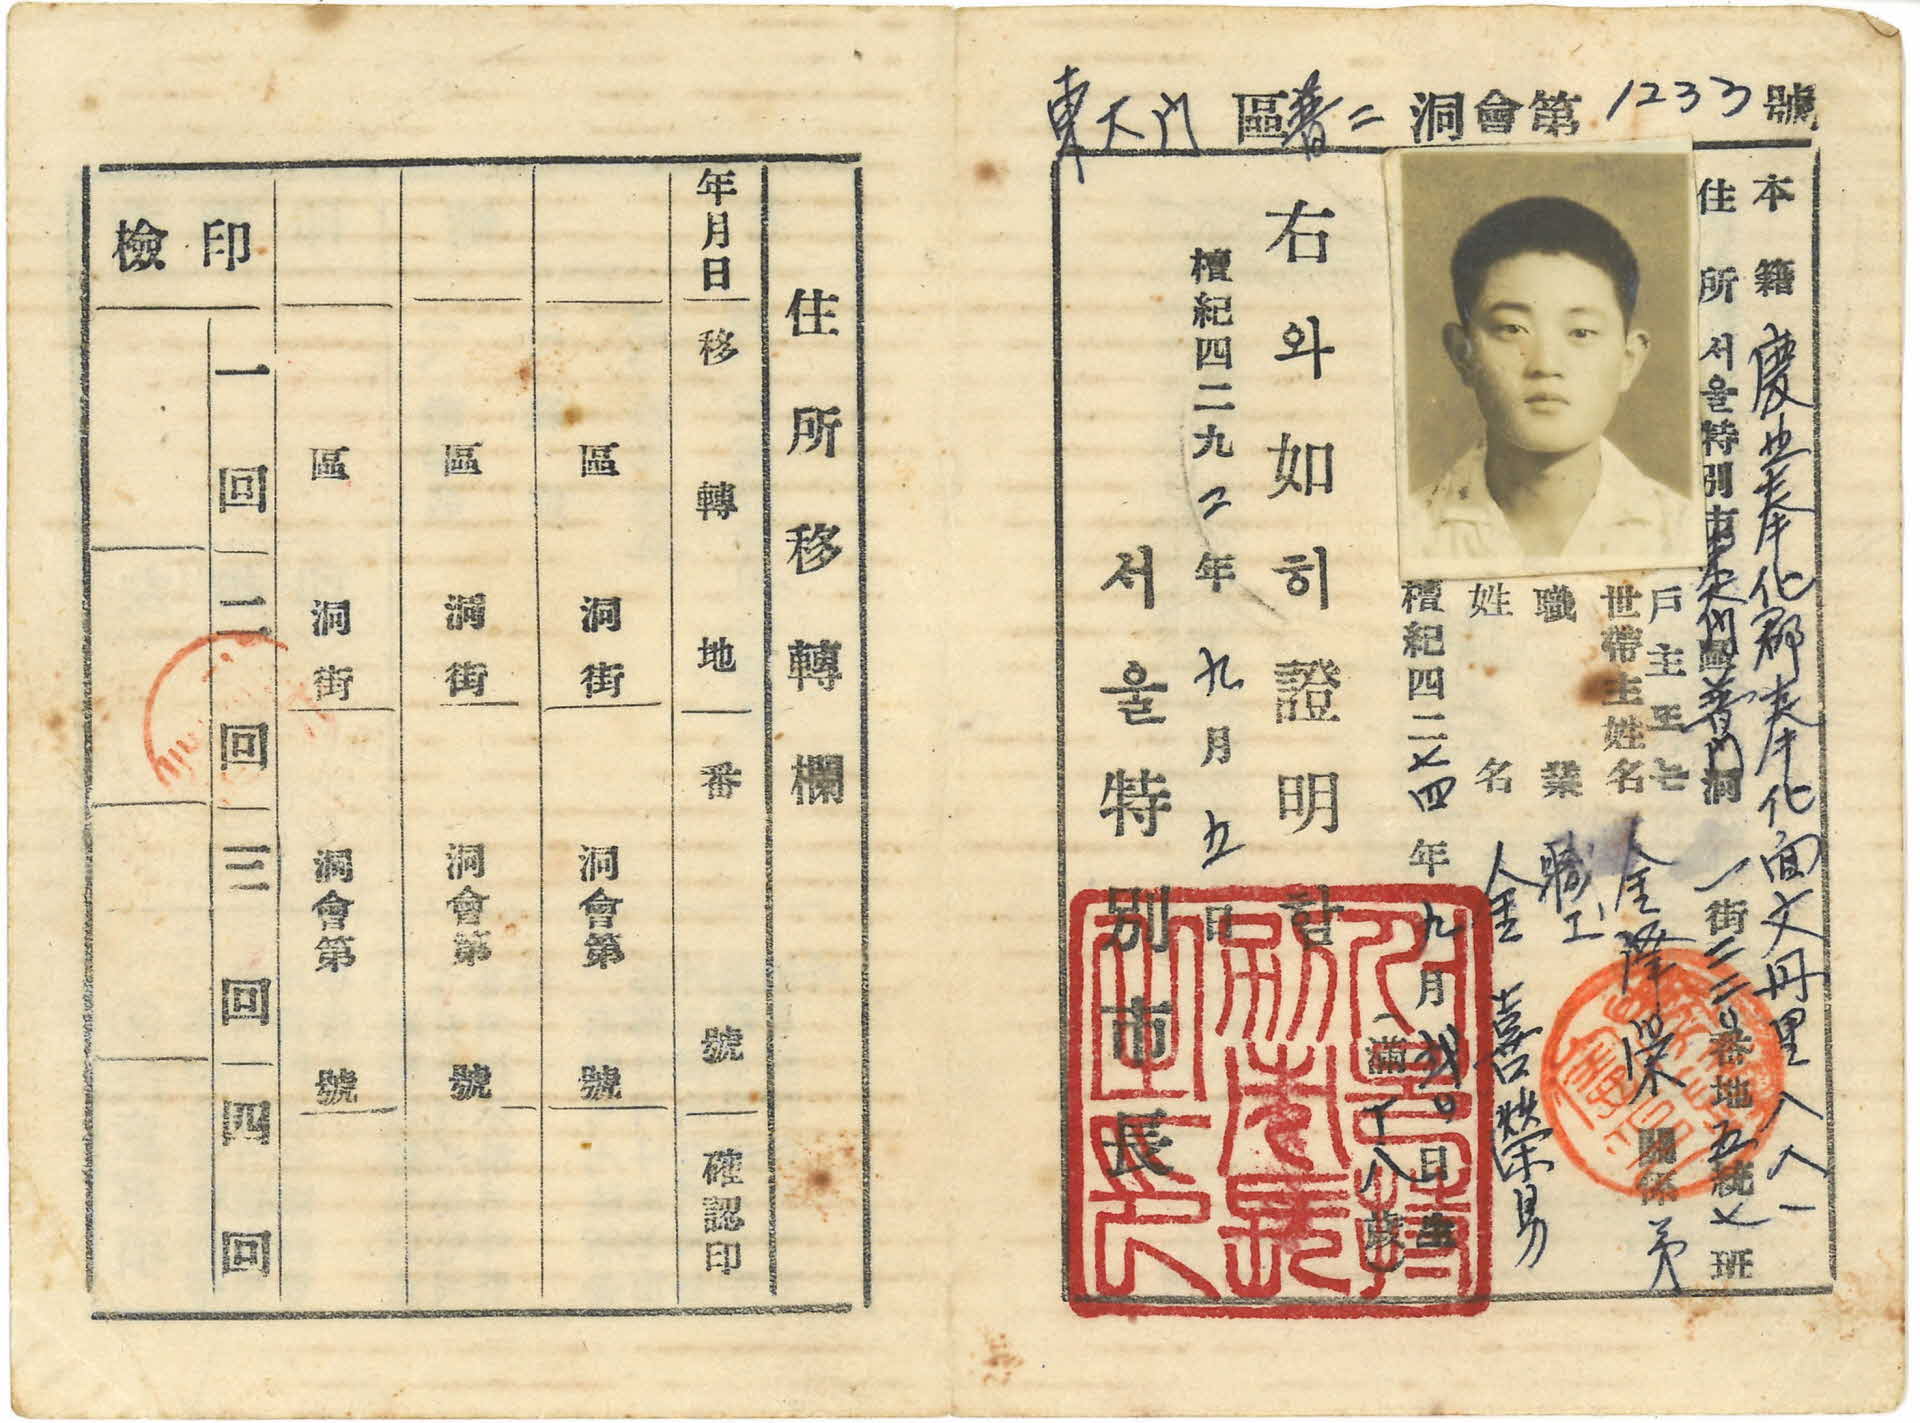 東大門 區 普二 洞會第 1233 號
本籍 慶北奉化郡奉化面文丹里八八一
住所 서울特別市東大門區普門洞一街三三0番地五統七班
戶主
世帶主姓名 金 榮 關係 弟
職業 職工
姓名 金喜 男
檀紀四二七四年九月 日生
(滿十八歲)
右와如히證明함
檀紀四二九二年九月五日
서울特別市長
住所移轉欄
年月日 移轉地番號 確認印
區 洞街 洞會第 號
區 洞街 洞會第 號
區 洞街 洞會第 號
檢印
一回
二回
三回
四回